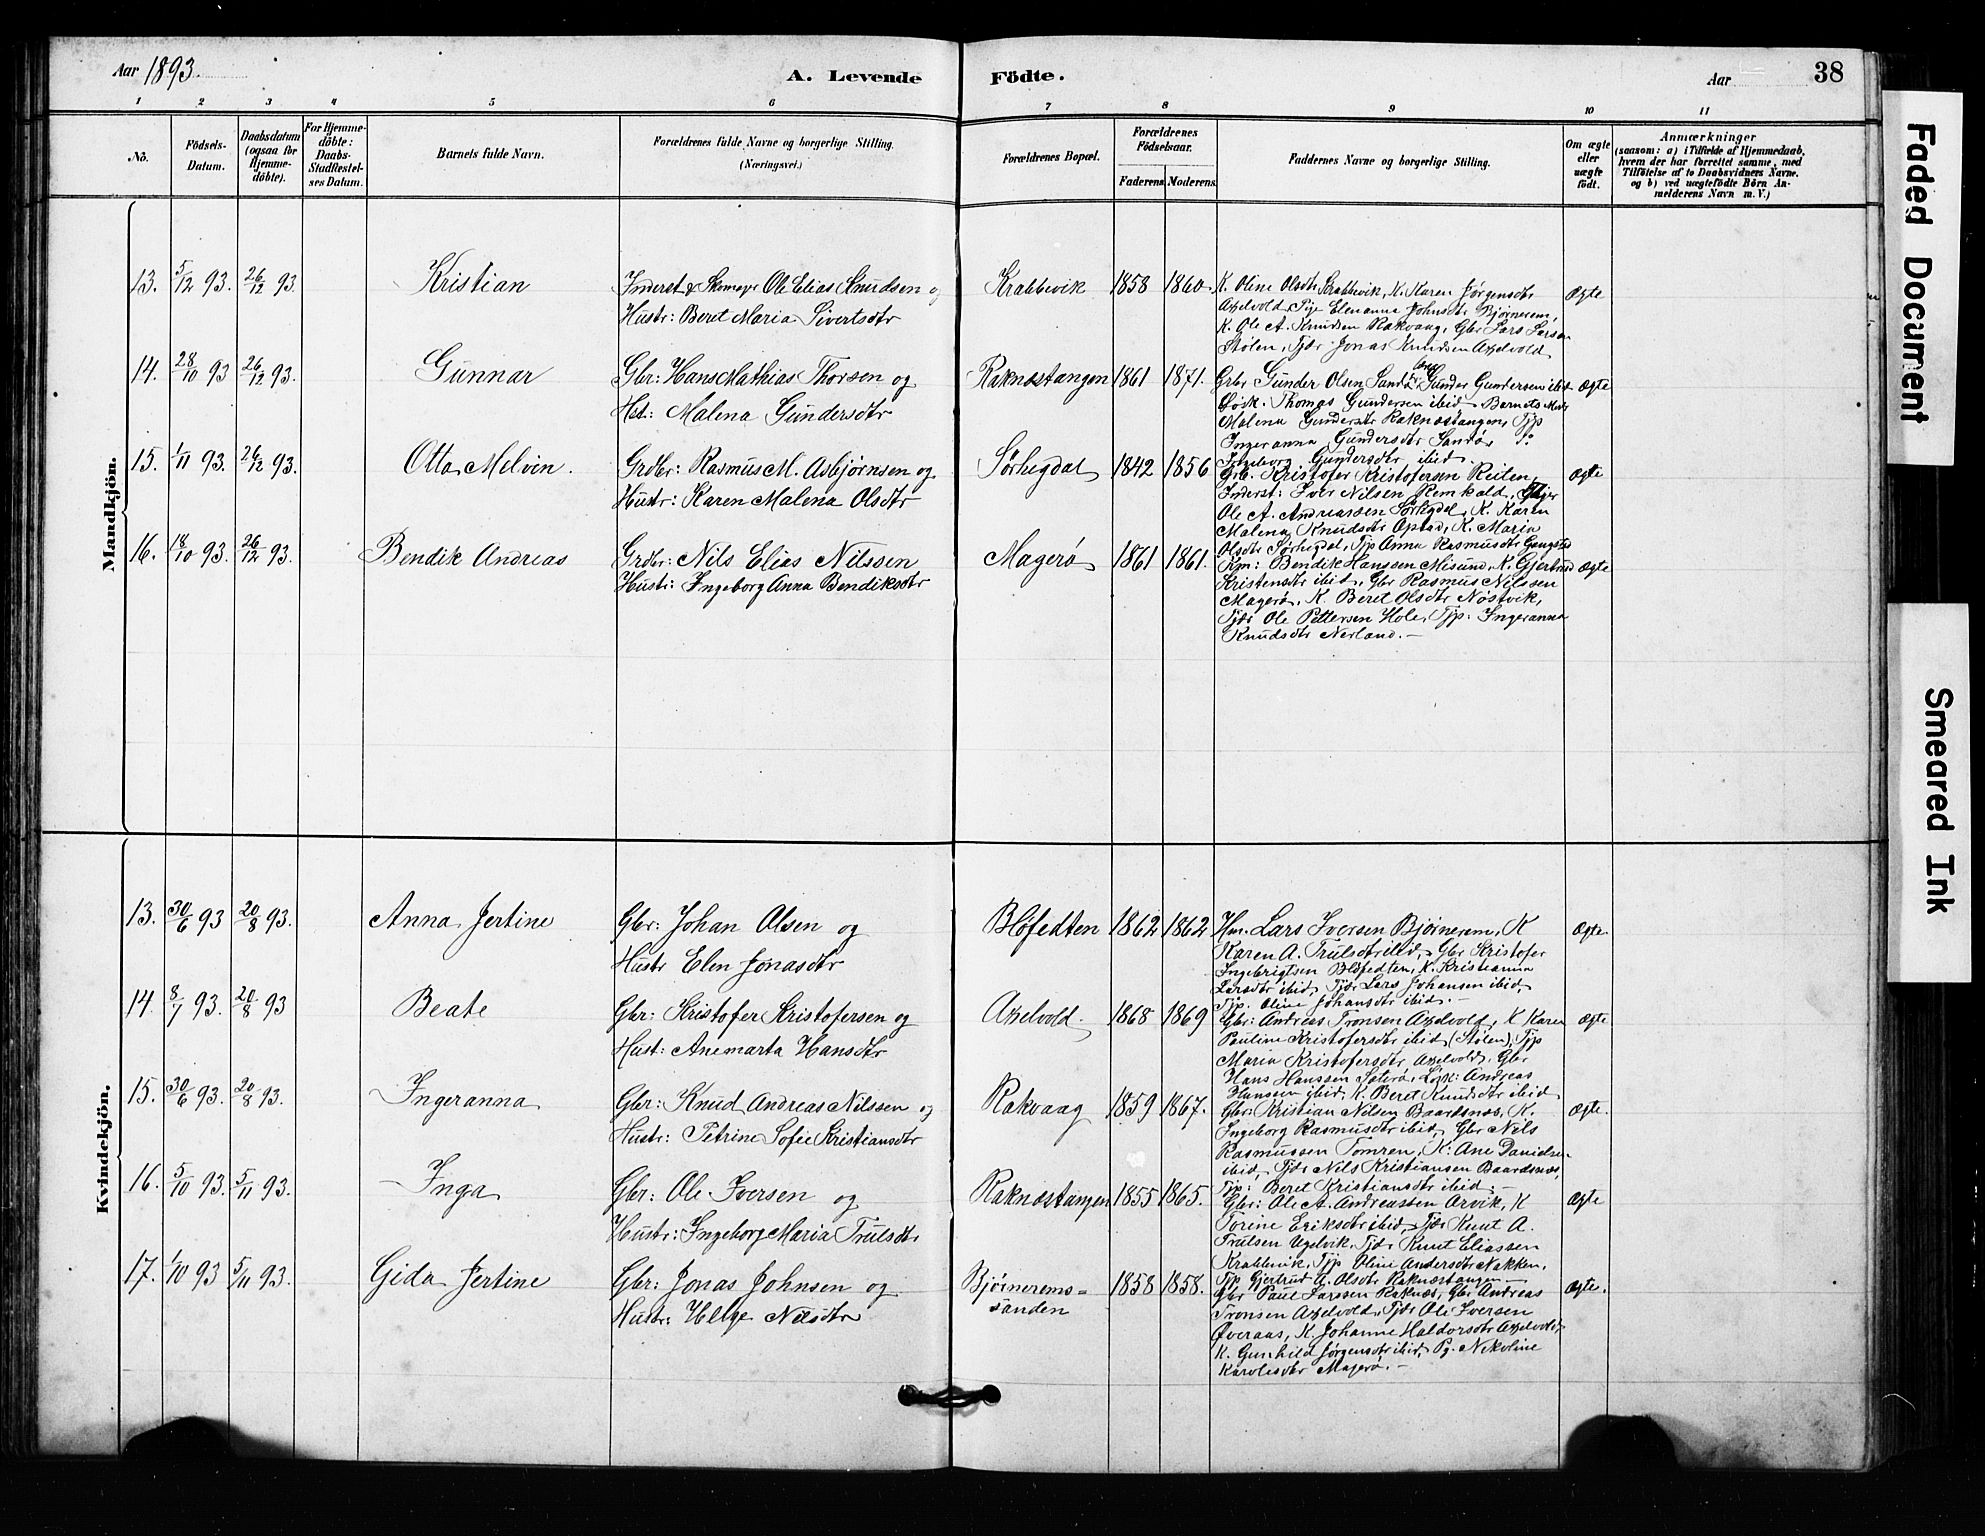 Aar 1893.
A. Levende Födte.
Aar
38
1 2 3 4 5 6 7 8 9 10 11
Nö.
Födsels-
Datum.
Daabsdatum
(ogsaa for
Hjemme-
döbte).
For Hjemme-
döbte:
Daabs-
Stadfæstel-
ses Datum.
Barnets fulde Navn.
Forældrenes fulde Navne og borgerlige Stilling.
(Næringsvei.)
Forældrenes Bopæl.
Forældrenes
Födselsaar.
Faderens Moderens
Faddernes Navne og borgerlige Stilling.
Om ægte
eller
uægte
födt.
Anmærkninger
(saasom: a) i Tilfælde af Hjemmedaab,
hvem der har forrettet samme, med
Tilföielse af to Daabsvidners Navne.
og b) ved uægtefödte Börn An-
melderens Navn m. V.)
Mandkjön.
13. 5/12 93. 26/12 93. Kristian
Inderst & Skomager Ole Elias Knudsen og
Hustr: Beret Maria Sivertsdtr
Krabbevik 1858 1860
K. Oline Olsdtr Krabbevik, K. Karen Jørgensdtr
Axelvold, Pige Elenanna Johnsdtr Bjørnerem,
K. Ole A. Knudsen Rakvaag, Gbr Lars Larsen
Stølen, Tjdr Jonas Knudsen Axelvold
Ægte
14. 28/10 93 26/12 93. Gunnar
Gbr: Hans Mathias Thorsen og
Hst: Malena Gundersdtr
Raknæstangen 1861 1871.
Grbr Gunder Olsen Sandø, Gunder Gundersen ibid
Løsk. Thomas Gundersen ibid, Barnets Moder
Malena Gundersdtr Raknæstangen, Tjp
Ingeranna Gundersdtr Sandø,
Ingeborg Gundersdtr ibid.
Ægte
15. 1/11 93. 26/12 93. Otto Melvin.
Grdbr: Rasmus M. Asbjørnsen og
Hustr: Karen Malena Olsdtr
Sörhegdal 1842 1856
Grb. Kristofer Kristofersen Reiten,
Inderst: Iver Nilsen Remkald,
Ole A. Andreassen Sörhegdal, K. Karen
Malena Knudsdtr Opstad, K. Maria
Olsdtr Sørhegdal, Tjp Anna Rasmusdtr
Ægte
16. 18/10 93. 26/12 93. Bendik Andreas
Grdbr: Nils Elias Nilssen
Hustr: Ingeborg Anna Bendiksdtr
Magerø 1861 1861.
Km: Bendik Hanssen Misund, K. Gjertrud
Kristensdtr ibid, Gbr Rasmus Nilssen
Magerø, K. Beret Olsdtr Nöstvik,
Tjdr Ole Pettersen Hole, Tjp: Ingeranna
Knudsdtr Nerland. —
Ægte
Kvindekjön.
13. 30/6 93 20/8 93. Anna Jertine
Gbr: Johan Olsen og
Hustr Elen Jonasdtr
Blöfedten 1862 1862
Hm. Lars Iversen Bjørnerem, K
Karen A. Trulsdtr ibid, Gbr Kristofer
Ingebrigtsen Blöfedten, K. Kristianna
Larsdtr ibid, Tjdr Lars Johansen ibid,
Tjp. Oline Johansdtr ibid. —
Ægte
14. 8/7 93. 20/8 93 Beate
Gbr: Kristofer Kristofersen og
Hust: Anemarta Hansdtr
Axelvold. 1868 1869
Gbr: Andreas Tronsen Axelvold, K Karen
Pauline Kristofersdtr ibid (Stølen), Tjp
Maria Kristofersdtr Axelvold, Gbr
Hans Hanssen Såterø, Løsk: Andreas
Hanssen ibid, K. Beret Knudsdtr ibid
Ægte
15. 30/6 93. 20/8 93. Ingeranna
Gbr: Knud Andreas Nilssen og
Hustr: Petrine Sofie Kristiansdtr
Rakvaag 1859 1867.
Gbr: Kristian Nilsen Baardsnæs, K.
Ingeborg Rasmusdtr ibid, Gbr Nils
Rasmussen Tomren, K: Ane Danielsen
ibid, Tjdr Nils Kristiansen Baardsnæs,
Tjp: Beret Kristiansdtr ibid. —
Ægte.
16. 5/10 93. 5/11 93. Inga
Gbr: Ole Iversen og
Hustr: Ingeborg Maria Trulsdtr
Raknæstangen 1855 1865.
Gbr: Ole A. Andreassen Arvik, K
Torine Eriksdtr ibid, Tjdr Knut A.
Trulsen Ugelvik, Tjdr Knut Eliassen
Krabbevik, Tjp Oline Andersdtr Nakken,
Tjp Gjertrud A. Olsdtr Raknæstangen —
Ægte
17. 1/10 93 5/11 93. Gida Jertine
Gbr: Jonas Johnsen og
Hustr: Helge Nilsdtr
Bjørnerems-
sanden
1858 1858.
Gbr Paul Larssen Raknæs, Gbr Andreas
Tronsen Axelvold, Tjdr Ole Iversen
Øveraas, K. Johanne Haldorsdtr Axelvold,
K. Gunhild Jørgensdtr ibid, Pg. Nikoline
Karolesdtr Magerö. —
Ægte.
Faded Document
Smeared Ink